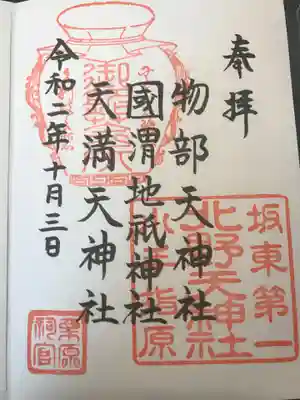 奉拝
物部天神社
國渭地祇神社
天満天神社
令和二年十月三日
坂東第一
北野天神社
栗原
祠官